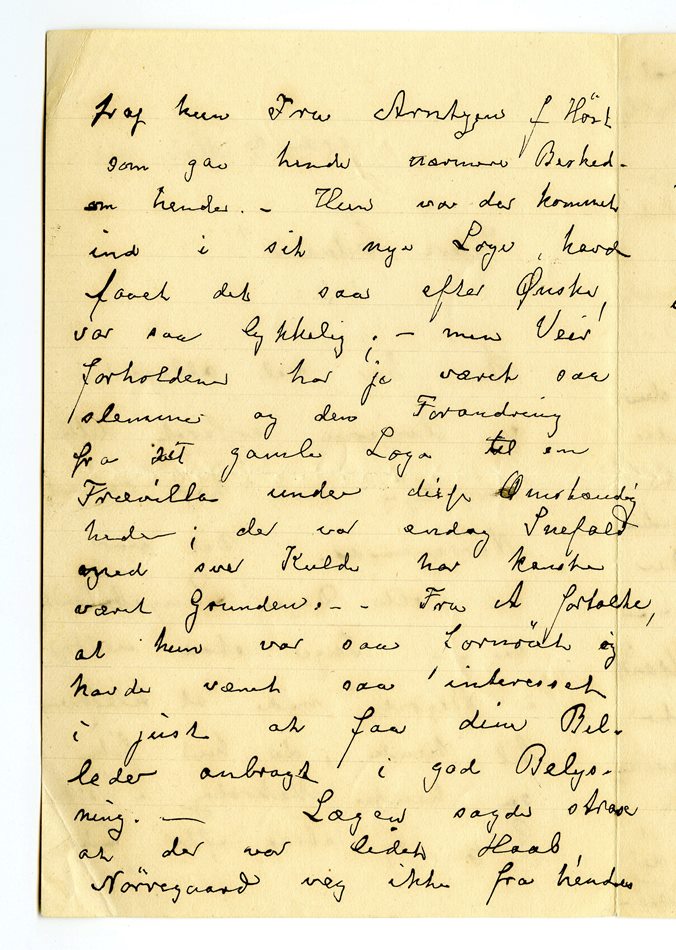 traf hun Fru Arntzen f Höst
som gav hende nærmere Besked
om hende. – Hun var der kommet
ind i sit nye Loge, havde
faaet det saa efter Ønske,
var saa lykkelig; – men Veir
forholdene har jo været saa
slemme og den Forandring
fra det gamle Loge til en
Trævilla under disse Omstændig
heder; der var endog Snefald
med svær Kulde har kanske
været Grunden. – – Fru A fortalte,
at hun var saa fornöiet og
havde været saa interesset
i just at faa dine Bil-
leder anbragt i god Belys-
ning. – Lægen sagde strax
at der var lidet Haab,
Nörregaard veg ikke fra hendes